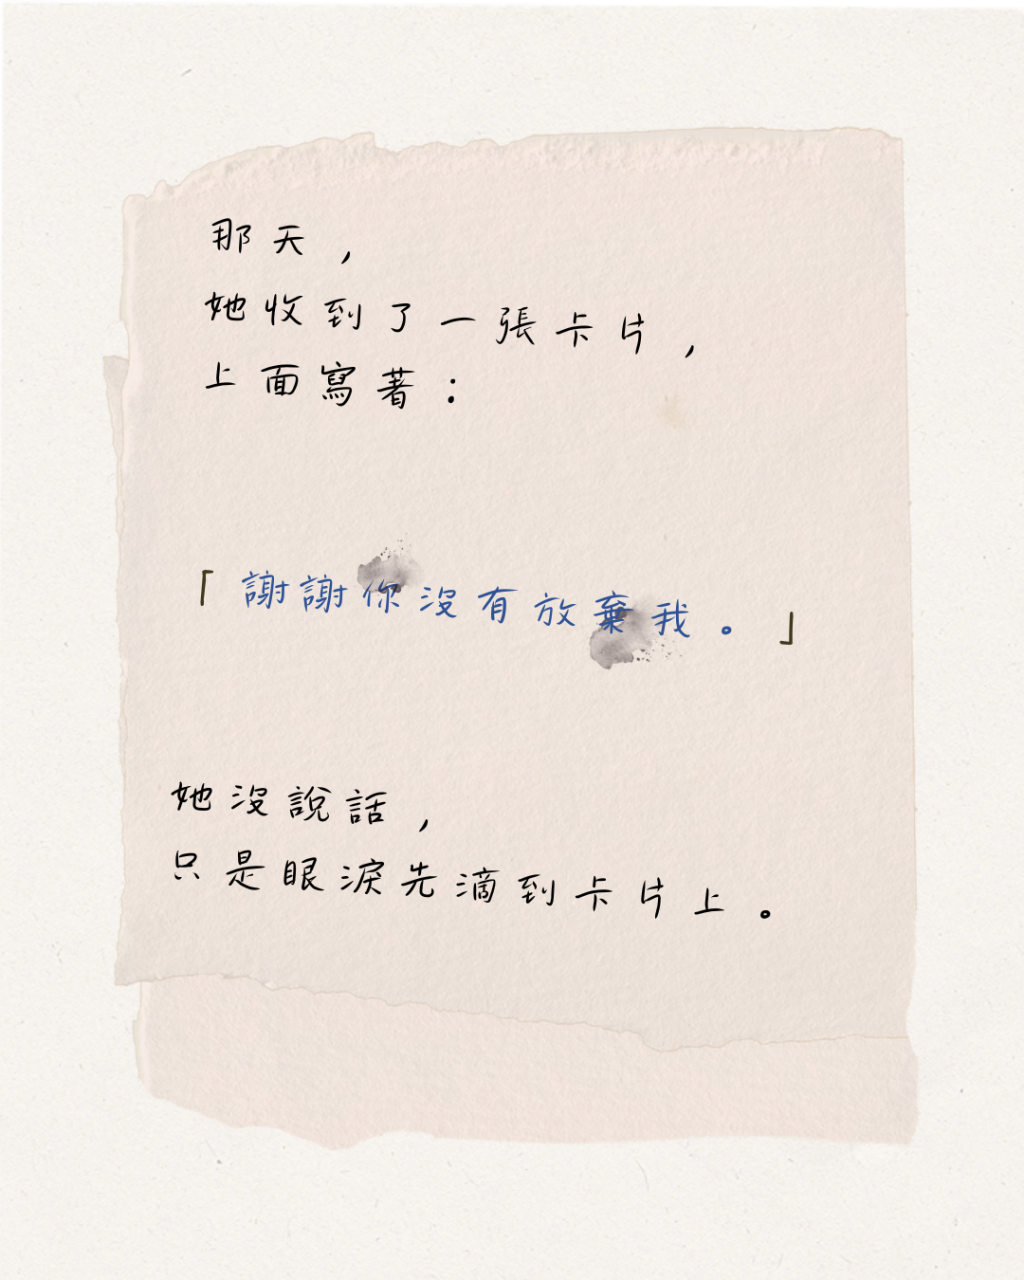 那天，
她收到了一張卡片，
上面寫著：
「謝謝你沒有放棄我。」
她沒說話，
只是眼淚先滴到卡片上。